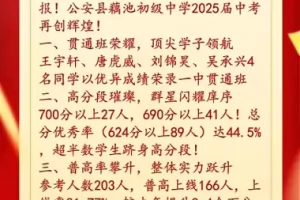 报！公安县藕池初级中学2025届中考
再创辉煌！
一、贯通班荣耀，顶尖学子领航
王宇轩、唐虎威、刘锦昊、吴承兴4
名同学以优异成绩荣录一中贯通班
二、高分段璀璨，群星闪耀庠序
700分以上27人，690分以上41人！总
分优秀率（624分以上89人）达44.5%
，超半数学生跻身高分段！
三、普高率攀升，整体实力跃升
参考人数203人，普高上线166人，上